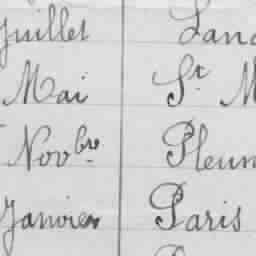 Juillet Lan
Mai St. M
Novbre Pleum
Janvier Paris